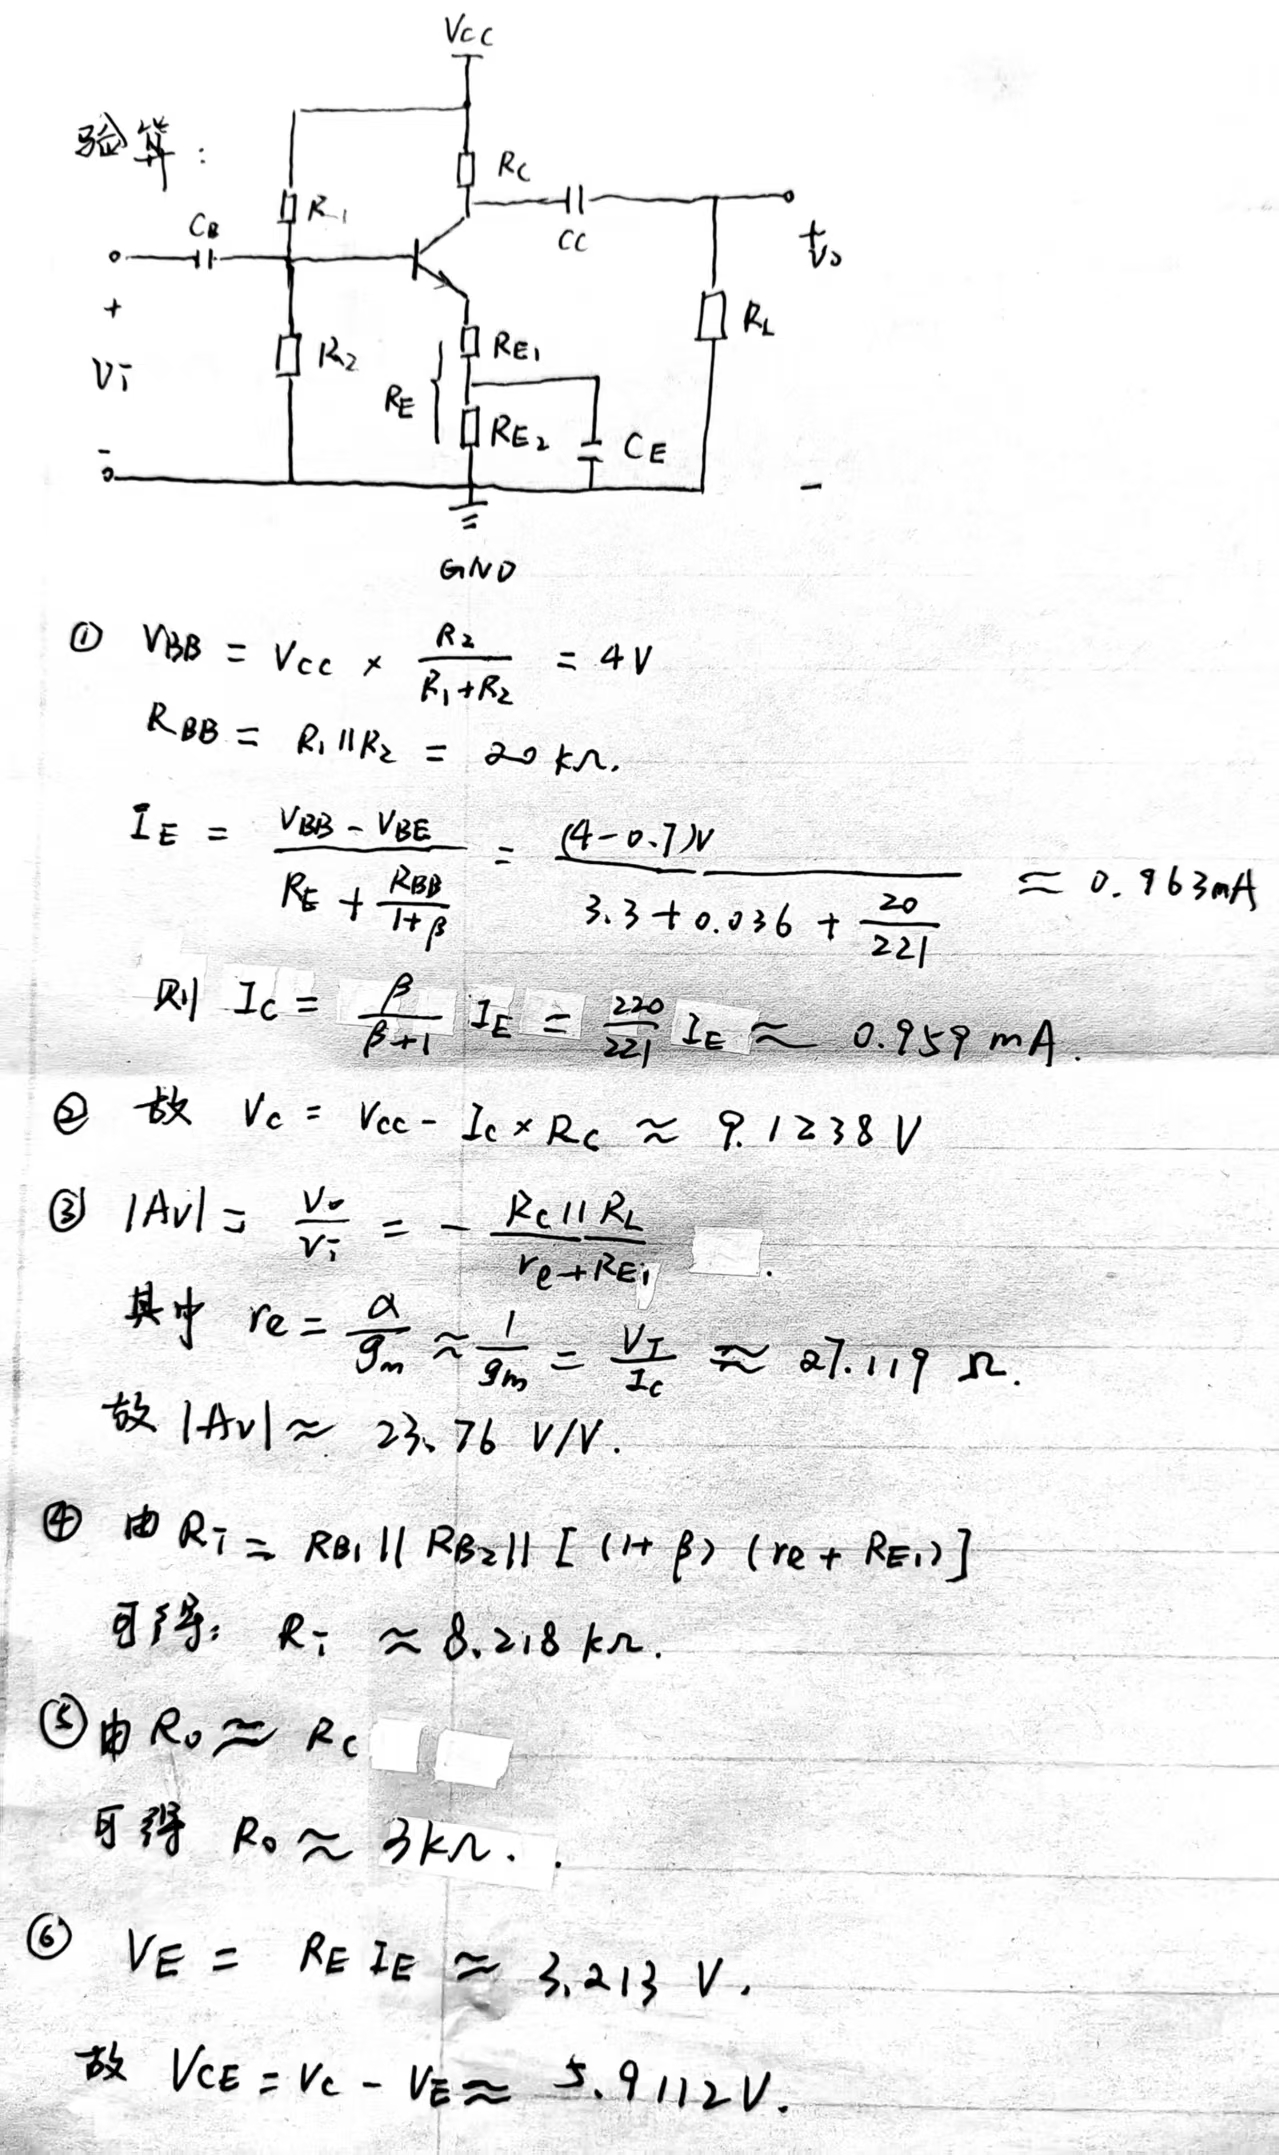 VCC
验算:
RC
R1
CB
CC
+
Vo
+
Vi
-
R2
RE1
RE
RE2
CE
RL
-
GND
① VBB = VCC × R2/(R1+R2) = 4V
RBB = R1 || R2 = 20 kΩ.
IE = (VBB - VBE)/(RE + RBB/(1+β)) = (4-0.7)V/(3.3+0.036+20/221) ≈ 0.963mA
则 IC = β/(β+1) IE = 220/221 IE ≈ 0.959 mA.
② 故 VC = VCC - IC × RC ≈ 9.1238 V
③ |AV| = Vo/Vi = - (RC || RL)/(re+RE1) .
其中 re = α/gm ≈ 1/gm = VT/IC ≈ 27.119 Ω.
故 |AV| ≈ 23.76 V/V.
④ 由 Ri = RB1 || RB2 || [ (1+β) (re + RE1) ]
可得: Ri ≈ 8.218 kΩ.
⑤ 由 Ro ≈ RC
可得 Ro ≈ 3kΩ. .
⑥ VE = RE IE ≈ 3.213 V.
故 VCE = VC - VE ≈ 5.9112V.